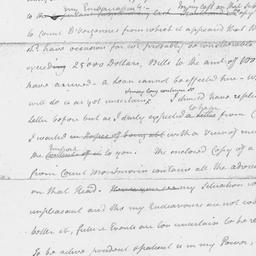 my Embarrassmts: my Lett on that Sub
to Count D'vergennes from which it appeared that
sh.d have occasion for wd. probably be considerable
exceeding 25000 Dollars, Bills to the amt of 100
have arrived - a Loan cannot be effected here - W
will do is as yet uncertain. I should have replied
letter before but as I daily expected to hear from C
I waited in with a View of
the to you. The enclosed Copy of a
from Count Montmorin contains all the advices
on that Head. my Situation is
unpleasant and tho my Endeavours are not
better it, future Events are too uncertain to be re
To be active prudent & patient is in my Power,